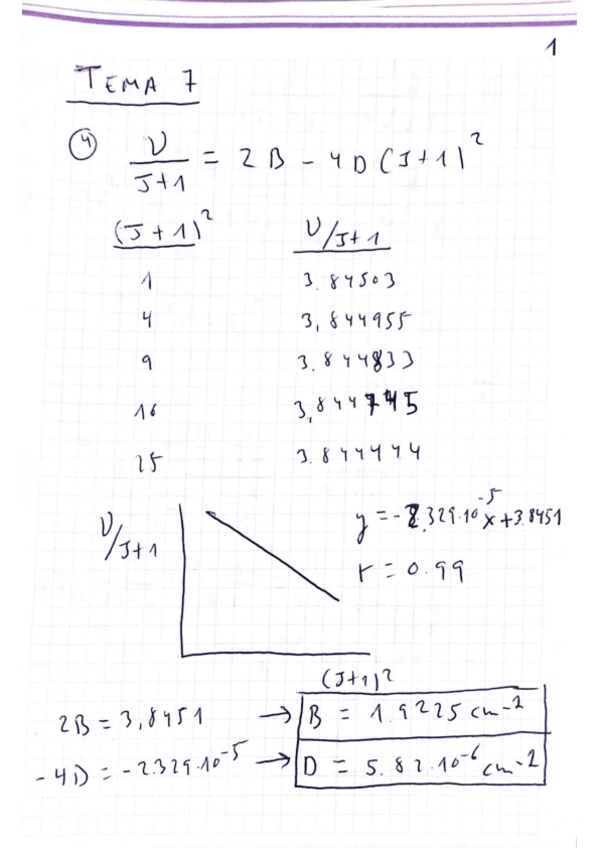 1
TEMA 7
④ ν/J+1 = 2B - 4D(J+1)²
(J+1)² ν/J+1
1 3.84503
4 3,844955
9 3.844833
16 3,844745
25 3.844444
y = -2.329·10⁻⁵x+3.8451
ν/J+1
r = 0.99
(J+1)²
2B = 3,8451 → B = 1.9225 cm-2
-4D = -2.329·10⁻⁵ → D = 5.82·10⁻⁶ cm-2